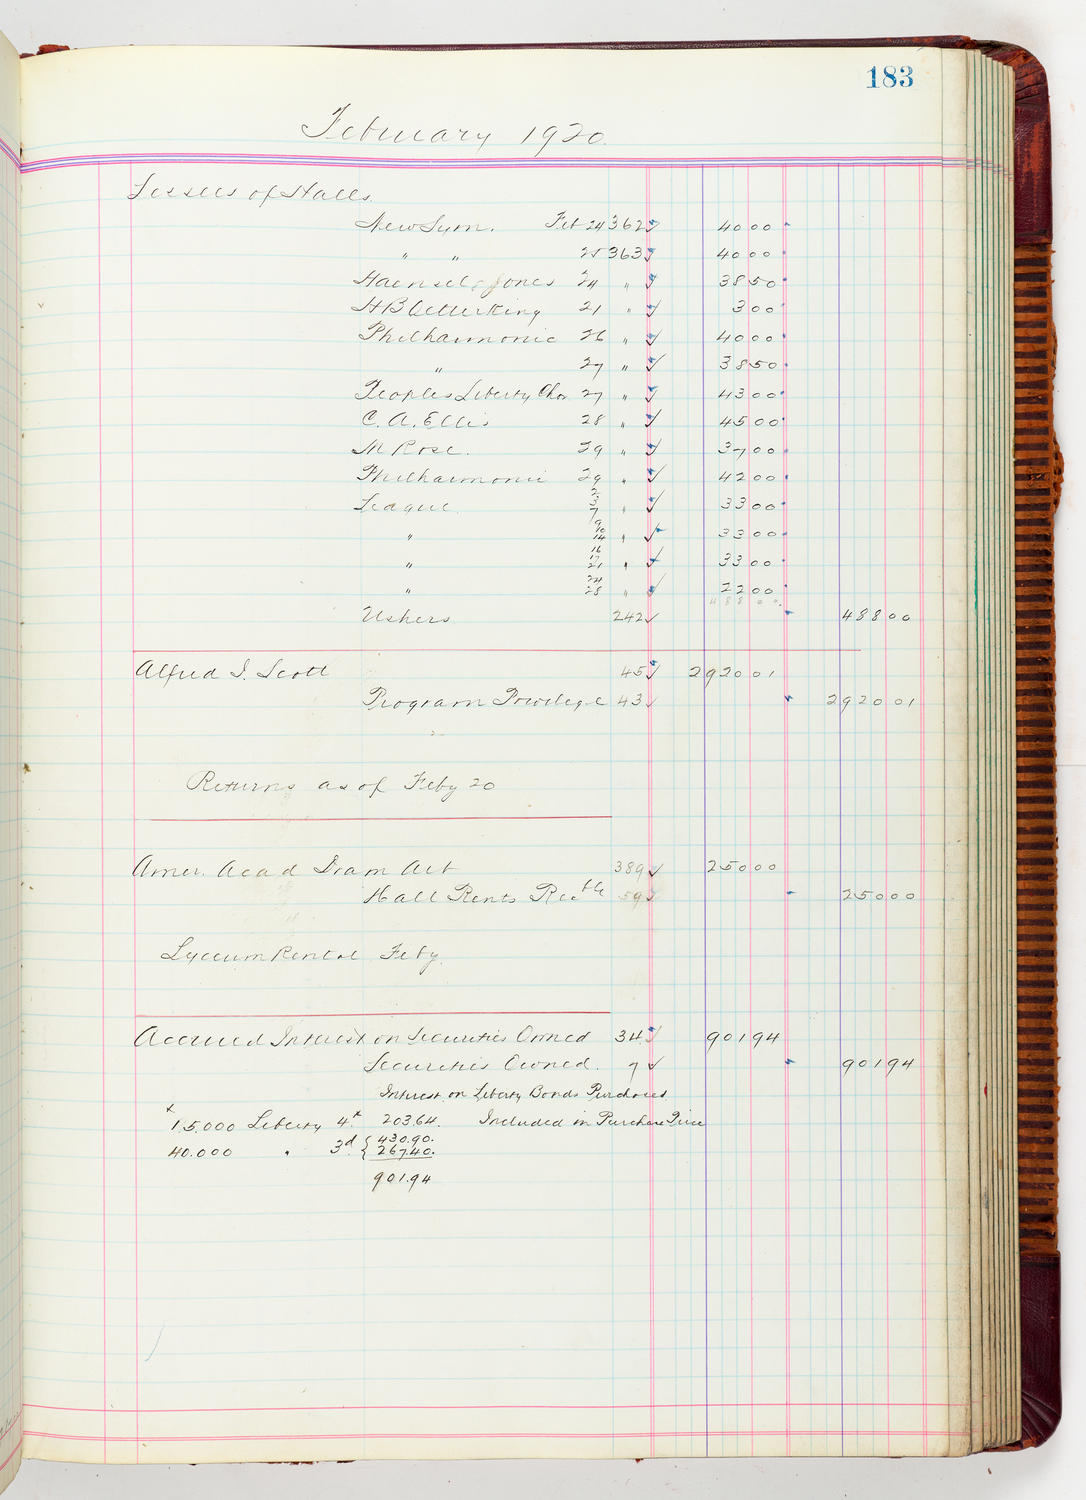 183
February 1920.
Lessees of Halls.
New Sym. Feb 24 362 40 00
" " 25 363 40 00
Haensel & Jones 24 " 38 50
H B 21 " 3 00
Philharmonic 26 " 40 00
" 27 " 38 50
Peoples Liberty Cho. 27 " 43 00
C. A. Ellis 28 " 45 00
M Rose. 29 " 37 00
Philharmonic 29 " 42 00
League. 2 3 7 " 33 00
" 9 10 14 " 33 00
" 16 17 21 " 33 00
" 24 28 " 22 00
488 00
Ushers 242 488 00
Alfred I. Scott 45 2920 01
Program Privilege 43 2920 01
Returns as of Feby 20
Amer. Acad Dram Art 389 250 00
Hall Rents Recble 59 250 00
Lyceum Rental Feby.
Accrued Interest on Securities Owned 34 901 94
Securities Owned. 7 901 94
Interest on Liberty Bonds Purchases
15.000 Liberty 4th 203.64. Included in Purchase Price
40.000 " 3d { 430.90.
267.40.
901.94